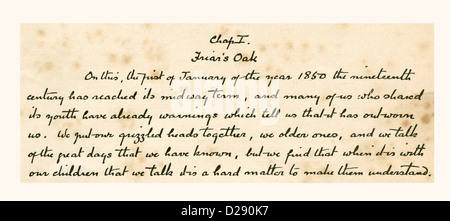 Chap I.
Friar's Oak
On this, the first of January of the year 1850 the nineteenth
century has reached its midway term, and many of us who shared
its youth have already warnings which tell us that it has outworn
us. We put our grizzled heads together, we older ones, and we talk
of the great days that we have known, but we find that when it is with
our children that we talk it is a hard matter to make them understand.
alamy
D290K7
www.alamy.com